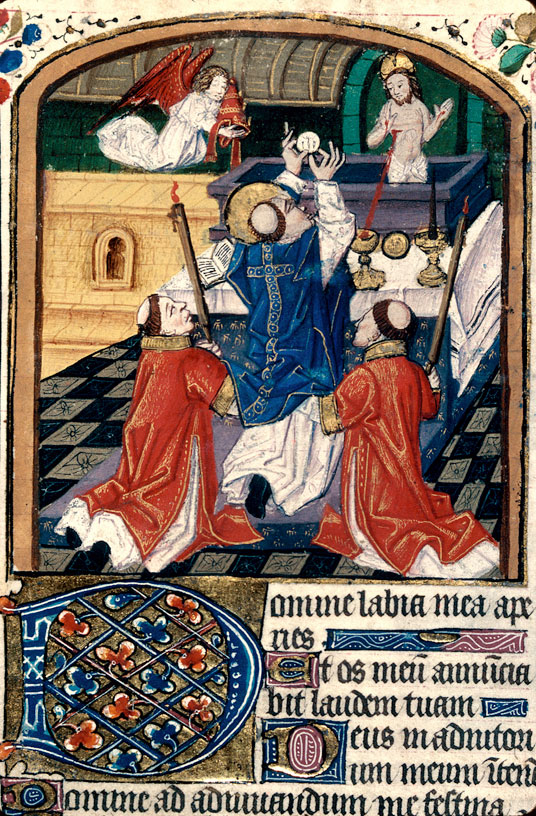 Domine labia mea ape
ries
Et os meū annūcia
bit laudem tuam
Deus in adiutori
um meum ītend
Domine ad adiuuandum me festina